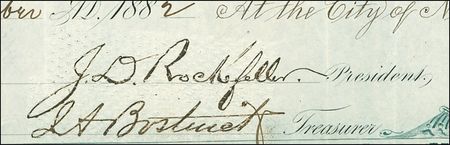 ber A.D. 1882 At the City of N
J.D. Rockefeller President,
J A Bostwick Treasurer